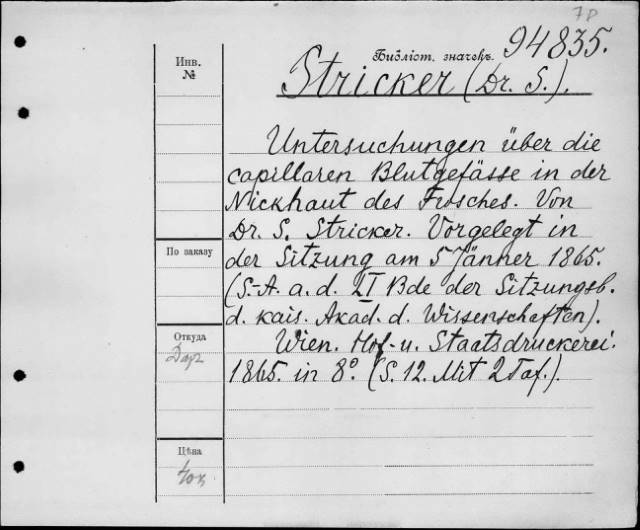 7 D
Инв.
№
Библіот. значекъ 94835.
Stricker (Dr. S.).
Untersuchungen über die
capillaren Blutgefässe in der
Nickhaut des Frosches. Von
Dr. S. Stricker. Vorgelegt in
der Sitzung am 5 Jänner 1865.
(S.-A. a. d. LI Bde der Sitzungsb.
d. kais. Akad. d. Wissenschaften).
Wien. Hof- u. Staatsdruckerei.
1865. in 8°. (S. 12. Mit 2 Taf.).
По заказу
Откуда
Дар
Цѣна